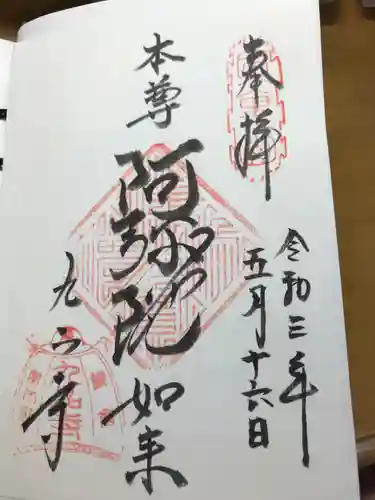 奉拝
令和三年
五月十六日
本尊
阿弥陀如来
九品寺